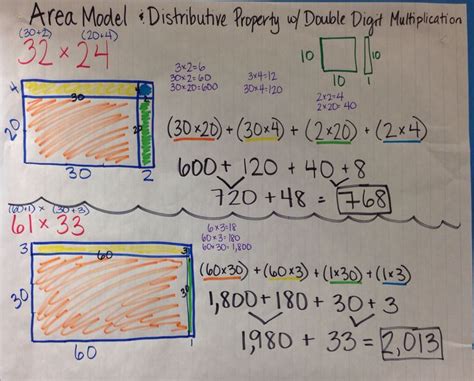 Area Model & Distributive Property w/ Double Digit Multiplication
(30+2) (20+4)
32 × 24
10
10
10
1
3×2=6
30×2=60
30×20=600
3×4=12
30×4=120
2×2=4
2×20=40
4
30
20
30
2
(30×20) + (30×4) + (2×20) + (2×4)
600 + 120 + 40 + 8
720 + 48 = 768
(60+1) × (30+3)
61 × 33
6×3=18
60×3=180
60×30=1,800
3
60
3
30
30
60
1
(60×30) + (60×3) + (1×30) + (1×3)
1,800 + 180 + 30 + 3
1,980 + 33 = 2,013